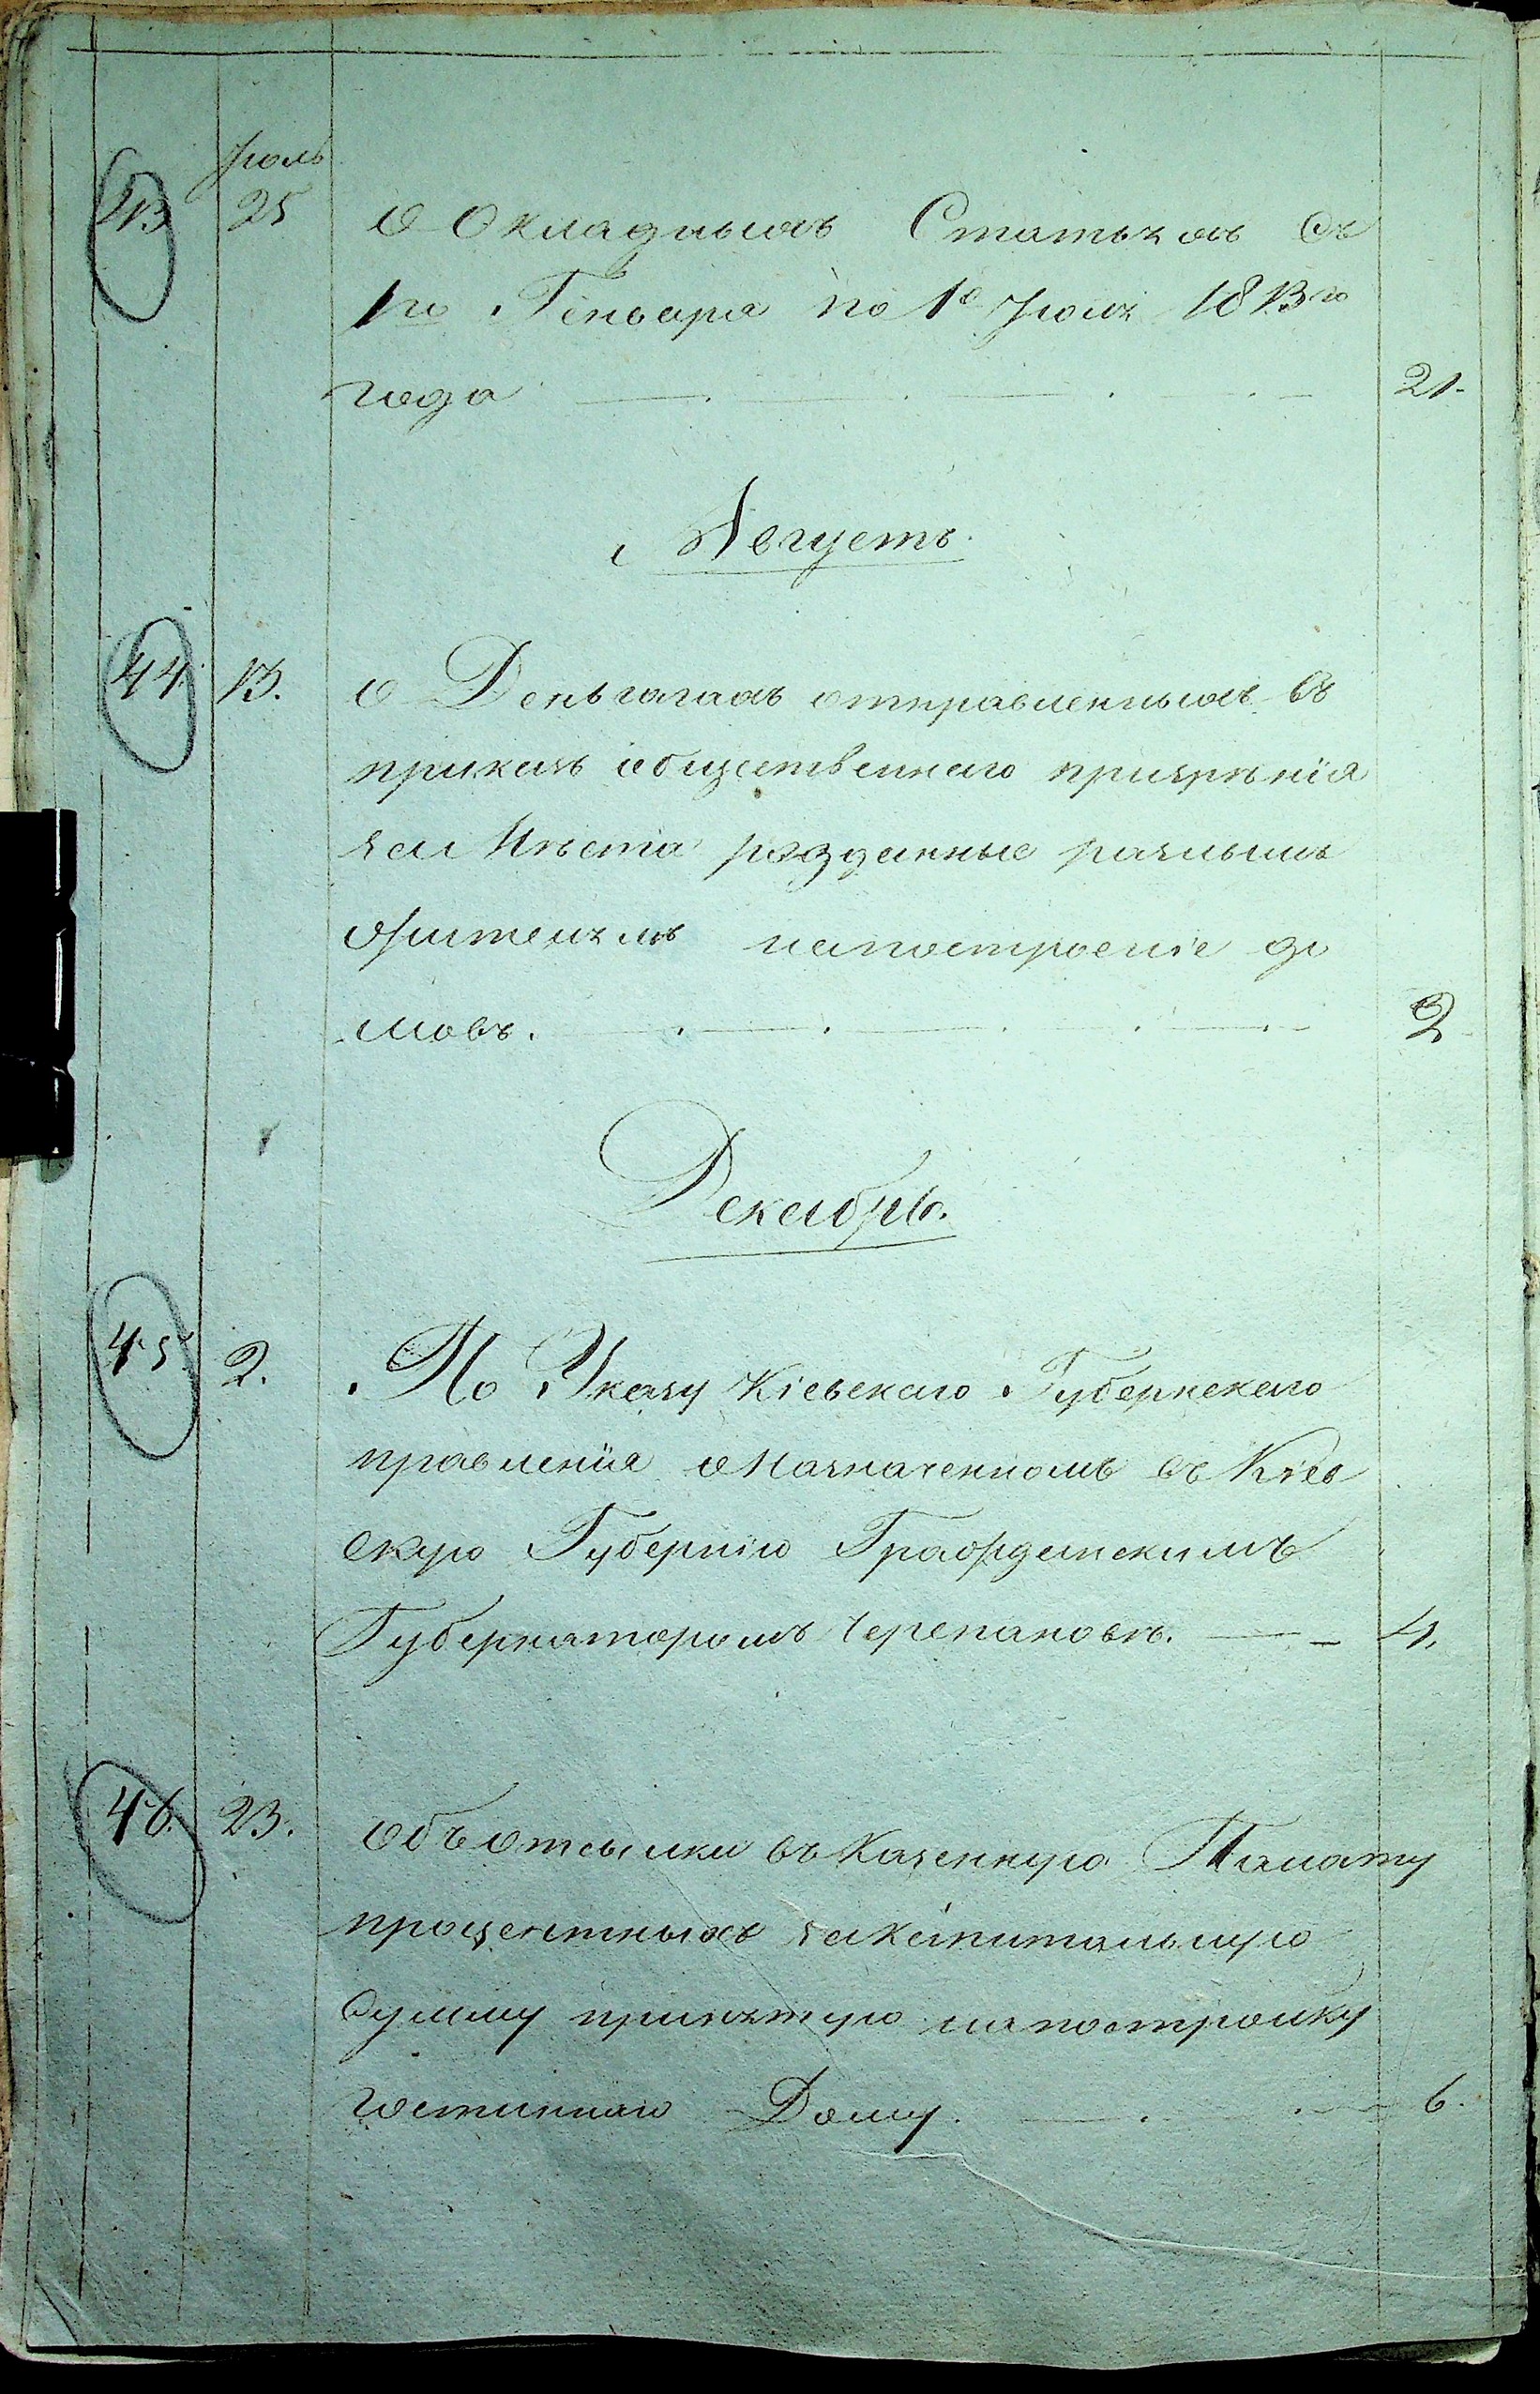 Іюль
43 25 О Окладныхъ Статьяхъ Съ
1го Генваря по 1е Іюля 1813го
года — . — . — . — . — 21.
Августъ.
44. 13. О Деньгахъ отправленныхъ въ
приказъ общественнаго призрѣнія
за Мѣста розданные разнымъ
жителямъ на построеніе до
мовъ. — . — . — . — . — 2
Декабрь.
45. 2. По Указу Кіевскаго Губернскаго
правленія о Назначенномъ въ Кіев
скую Губернію Гражданскимъ
Губернаторомъ Черепановѣ. — – 4.
46. 23. Объ отсылки въ Казенную Палату
процентныхъ за капитальную
Сумму принятую на постройку
гостиннаго Дому. — . — . — 6.